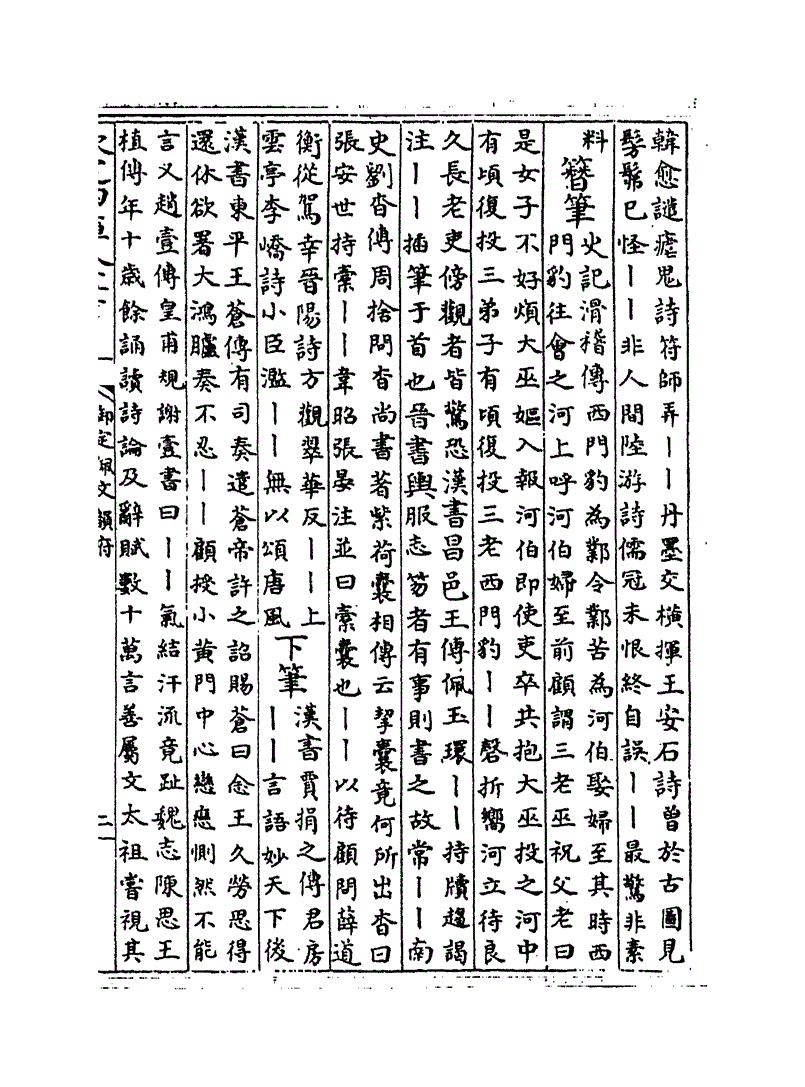 韓愈譴瘧鬼詩符師弄丨丨丹墨交橫揮王安石詩曾於古圖見
髣髴已怪丨丨非人間陸游詩儒冠未恨終自誤丨丨最驚非素
料
簪筆
史記滑稽傳西門豹為鄴令鄴苦為河伯娶婦至其時西
門豹往會之河上呼河伯婦至前顧謂三老巫祝父老曰
是女子不好煩大巫嫗入報河伯即使吏卒共抱大巫投之河中
有頃復投三弟子有頃復投三老西門豹丨丨磬折嚮河立待良
久長老吏傍觀者皆驚恐漢書昌邑王傳佩玉環丨丨持牘趨謁
注丨丨插筆于首也晉書輿服志笏者有事則書之故常丨丨南
史劉杳傳周捨問杳尚書著紫荷囊相傳云挈囊竟何所出杳曰
張安世持橐丨丨韋昭張晏注並曰橐囊也丨丨以待顧問薛道
衡從駕幸晉陽詩方觀翠華反丨丨上
雲亭李嶠詩小臣濫丨丨無以頌唐風
下筆
漢書賈捐之傳君房
丨丨言語妙天下後
漢書東平王蒼傳有司奏遣蒼帝許之詔賜蒼曰念王久勞思得
還休欲署大鴻臚奏不忍丨丨顧授小黃門中心戀戀惻然不能
言又趙壹傳皇甫規謝壹書曰丨丨氣結汗流竟趾魏志陳思王
植傳年十歲餘誦讀詩論及辭賦數十萬言善屬文太祖嘗視其
御定佩文韻府
二